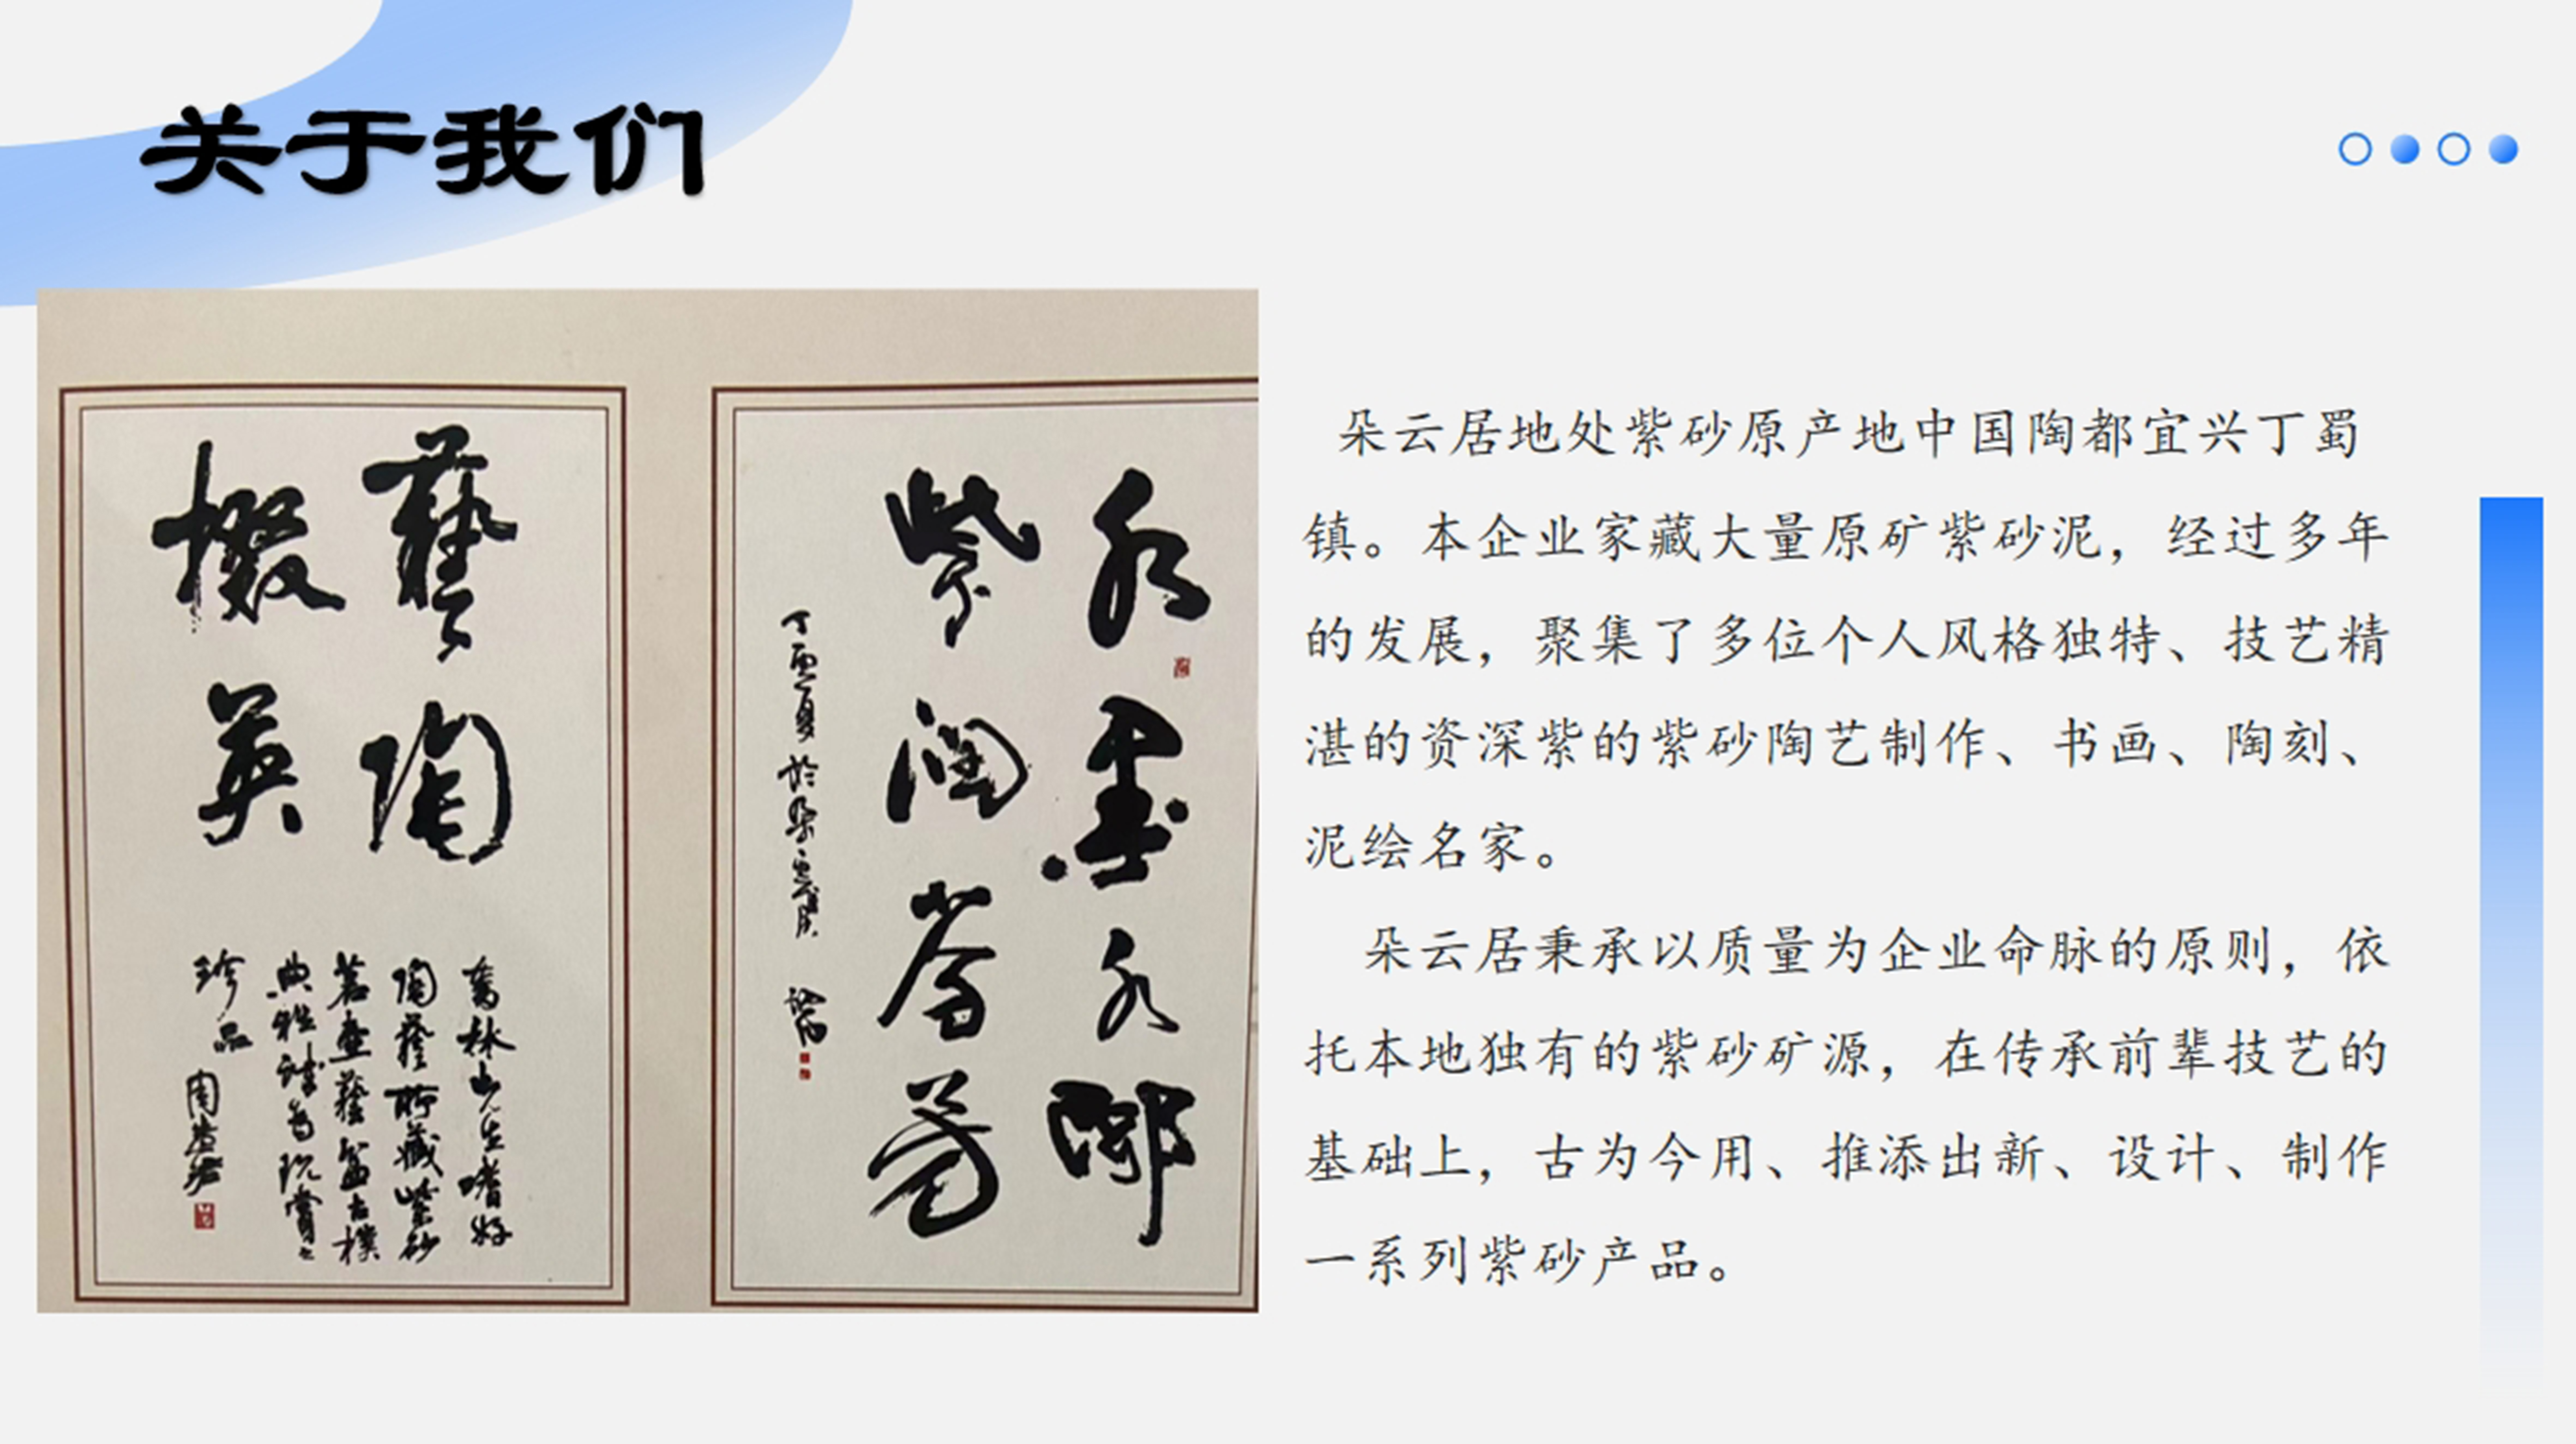 关于我们
水墨水鄉
紫潤茗芳
丁酉夏於朵雲居
藝陶
掇英
陶藝所藏紫砂
茗壺藝盆古樸
珍品
朵云居地处紫砂原产地中国陶都宜兴丁蜀
镇。本企业家藏大量原矿紫砂泥，经过多年
的发展，聚集了多位个人风格独特、技艺精
湛的资深紫的紫砂陶艺制作、书画、陶刻、
泥绘名家。
朵云居秉承以质量为企业命脉的原则，依
托本地独有的紫砂矿源，在传承前辈技艺的
基础上，古为今用、推添出新、设计、制作
一系列紫砂产品。